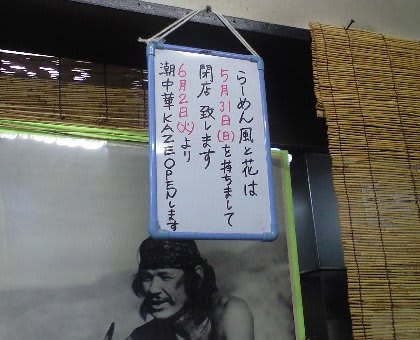 らーめん風と花は
5月31日(日)を持ちまして
閉店致します
6月2日(火)より
潮中華KAZEOPENします